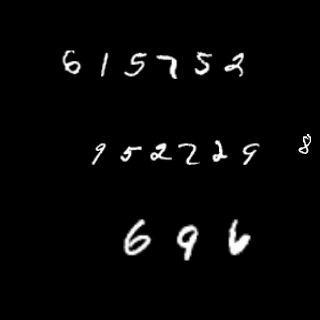 615752
952729 8
696